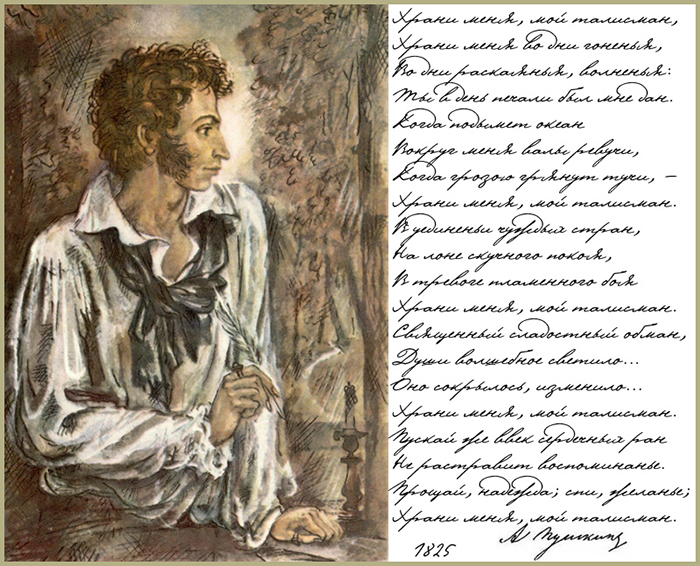 Храни меня, мой талисман,
Храни меня во дни гоненья,
Во дни раскаянья, волненья:
Ты в день печали был мне дан.
Когда подымет океан
Вокруг меня валы ревучи,
Когда грозою грянут тучи, –
Храни меня, мой талисман.
В уединеньи чуждых стран,
На лоне скучного покоя,
В тревоге пламенного боя
Храни меня, мой талисман.
Священный сладостный обман,
Души волшебное светило...
Оно сокрылось, изменило...
Храни меня, мой талисман.
Пускай же ввек сердечных ран
Не растравит воспоминанье.
Прощай, надежда; спи, желанье;
Храни меня, мой талисман.
А Пушкинъ
1825